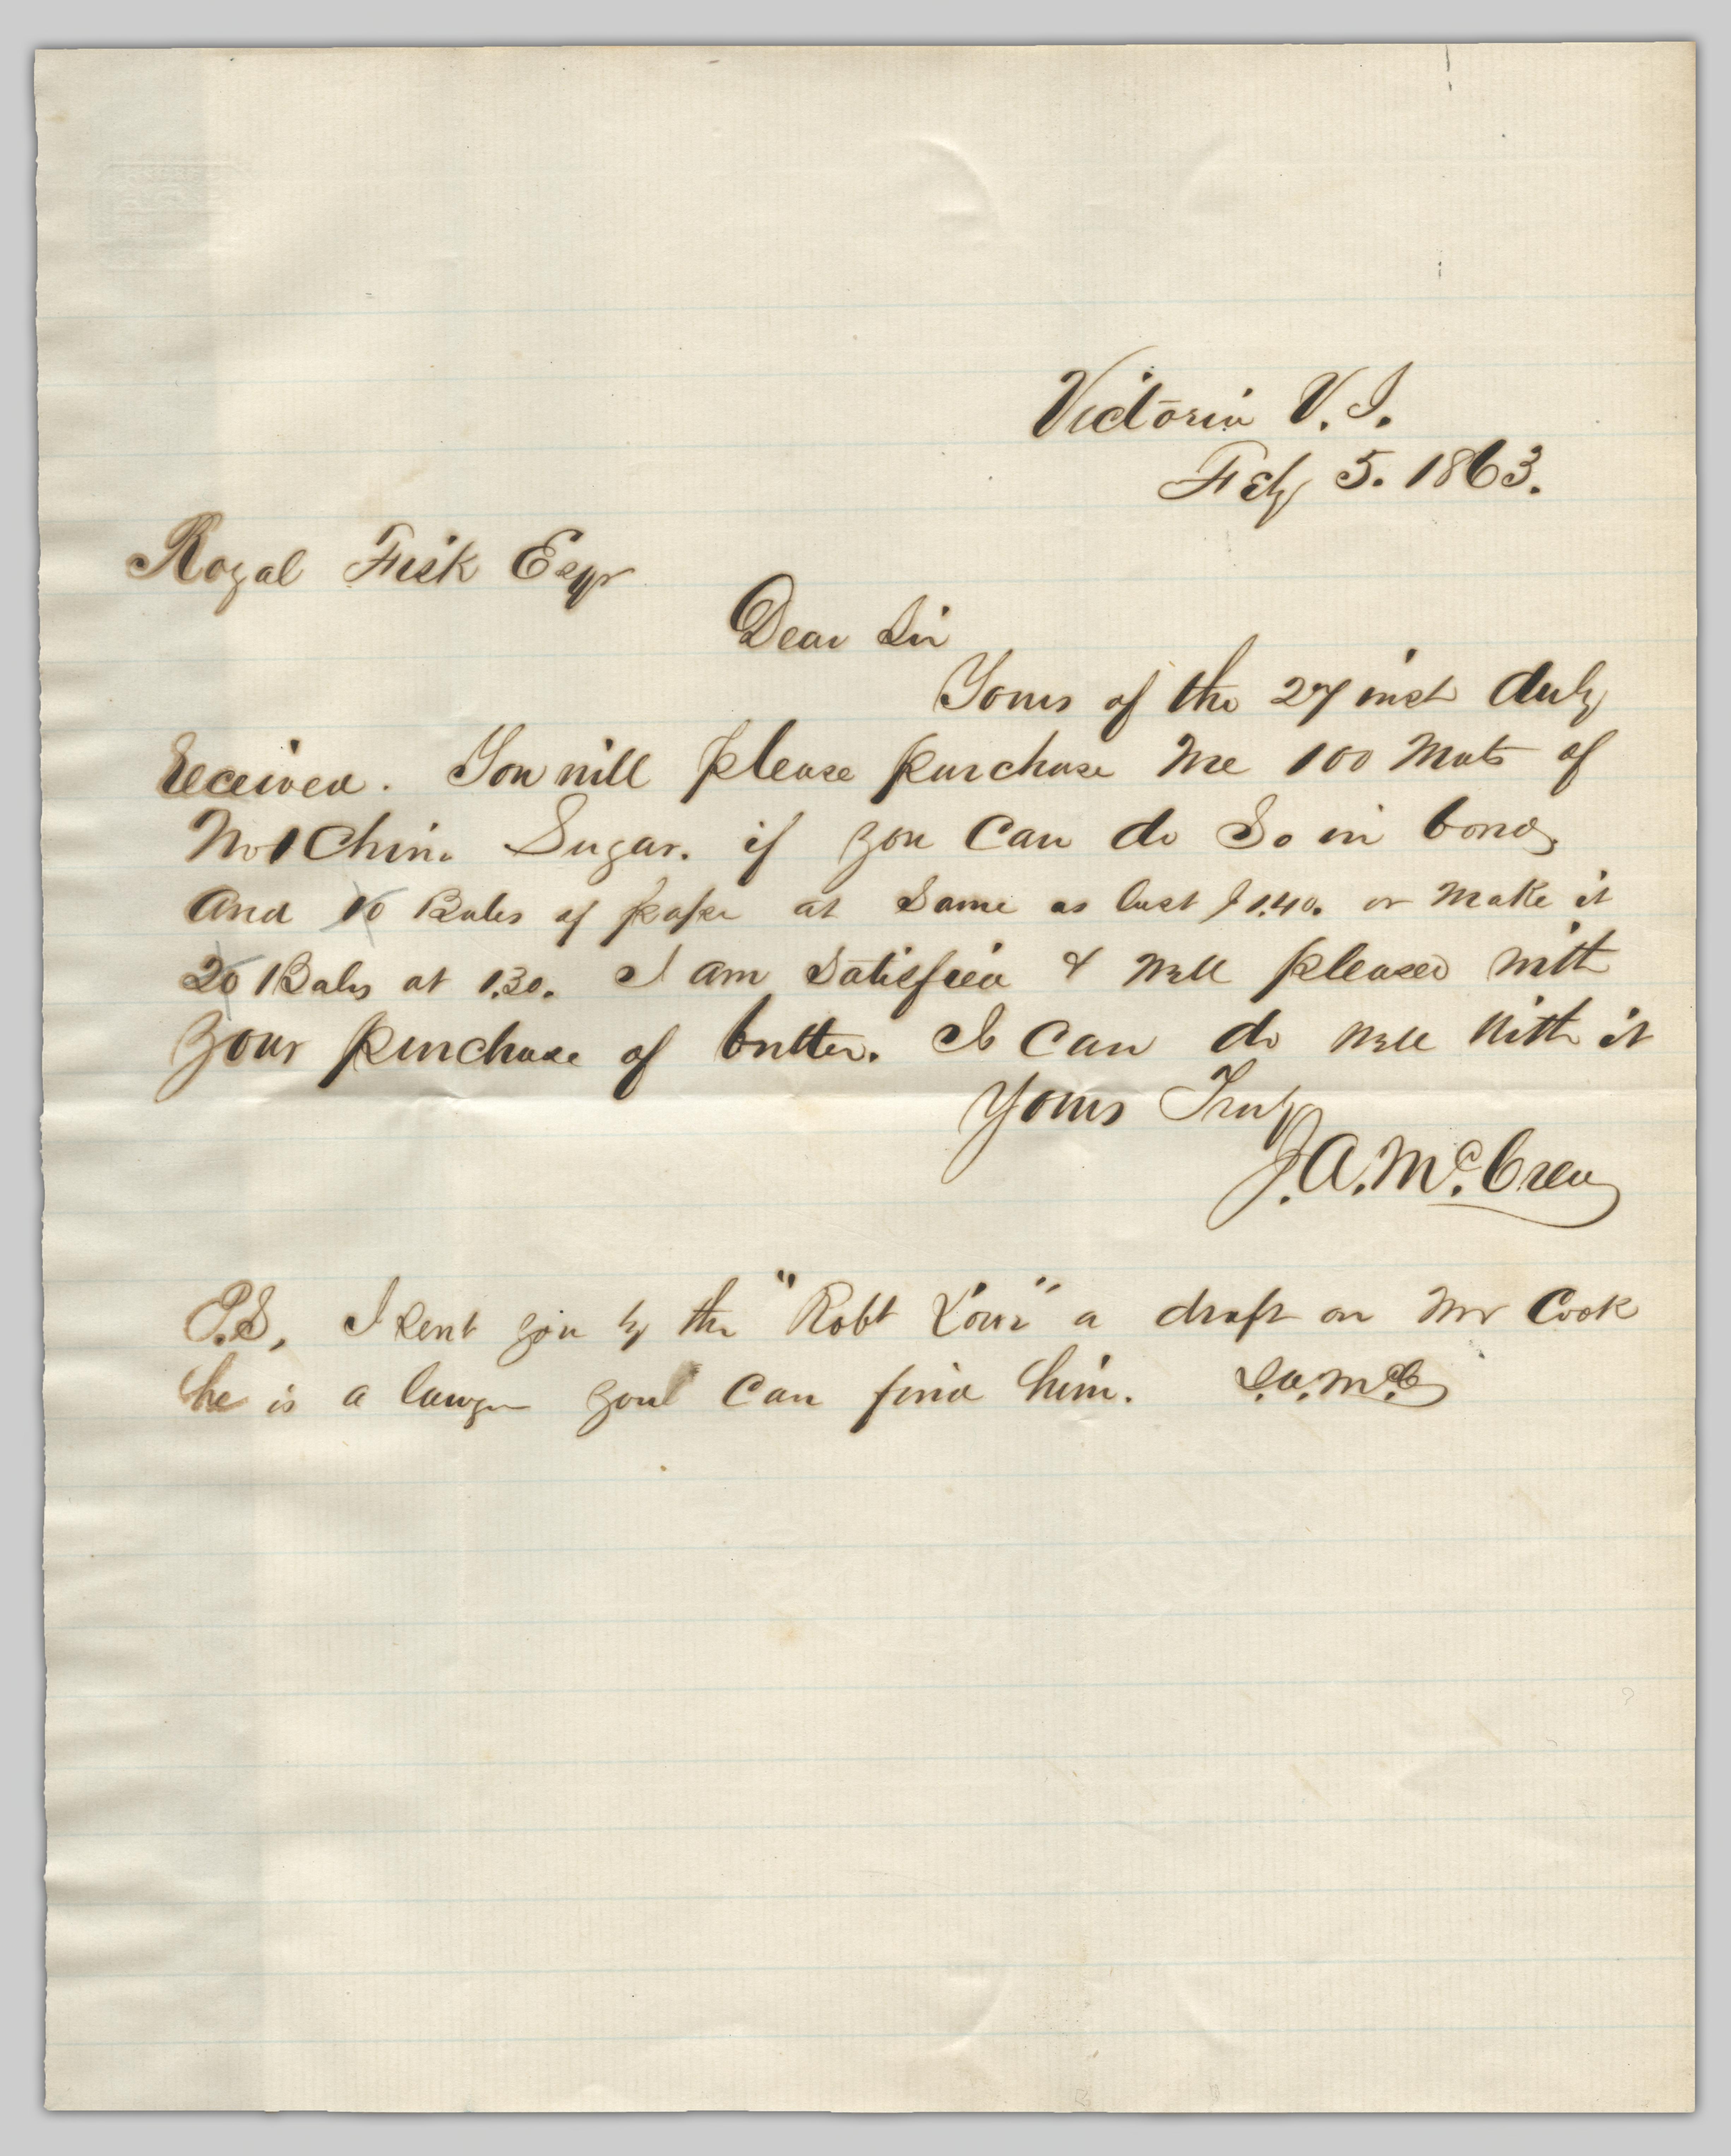 Victoria V.I.
Feby 5. 1863.
Royal Fisk Esqr
Dear Sir
Yours of the 27 inst duly
received. You will please purchase me 100 Mats of
No 1 China Sugar. if you Can do So in bond,
And 10 Bales of paper at Same as last $1.40. or Make it
20 Bales at 1.30. I am Satisfied & well pleased with
your purchase of butter. I Can do well with it
Yours Truly
J. A. McCrea
P.S, I sent you by the "Robt Low" a draft on Mr Cook
he is a lawyer youl Can find him. J.A.McC